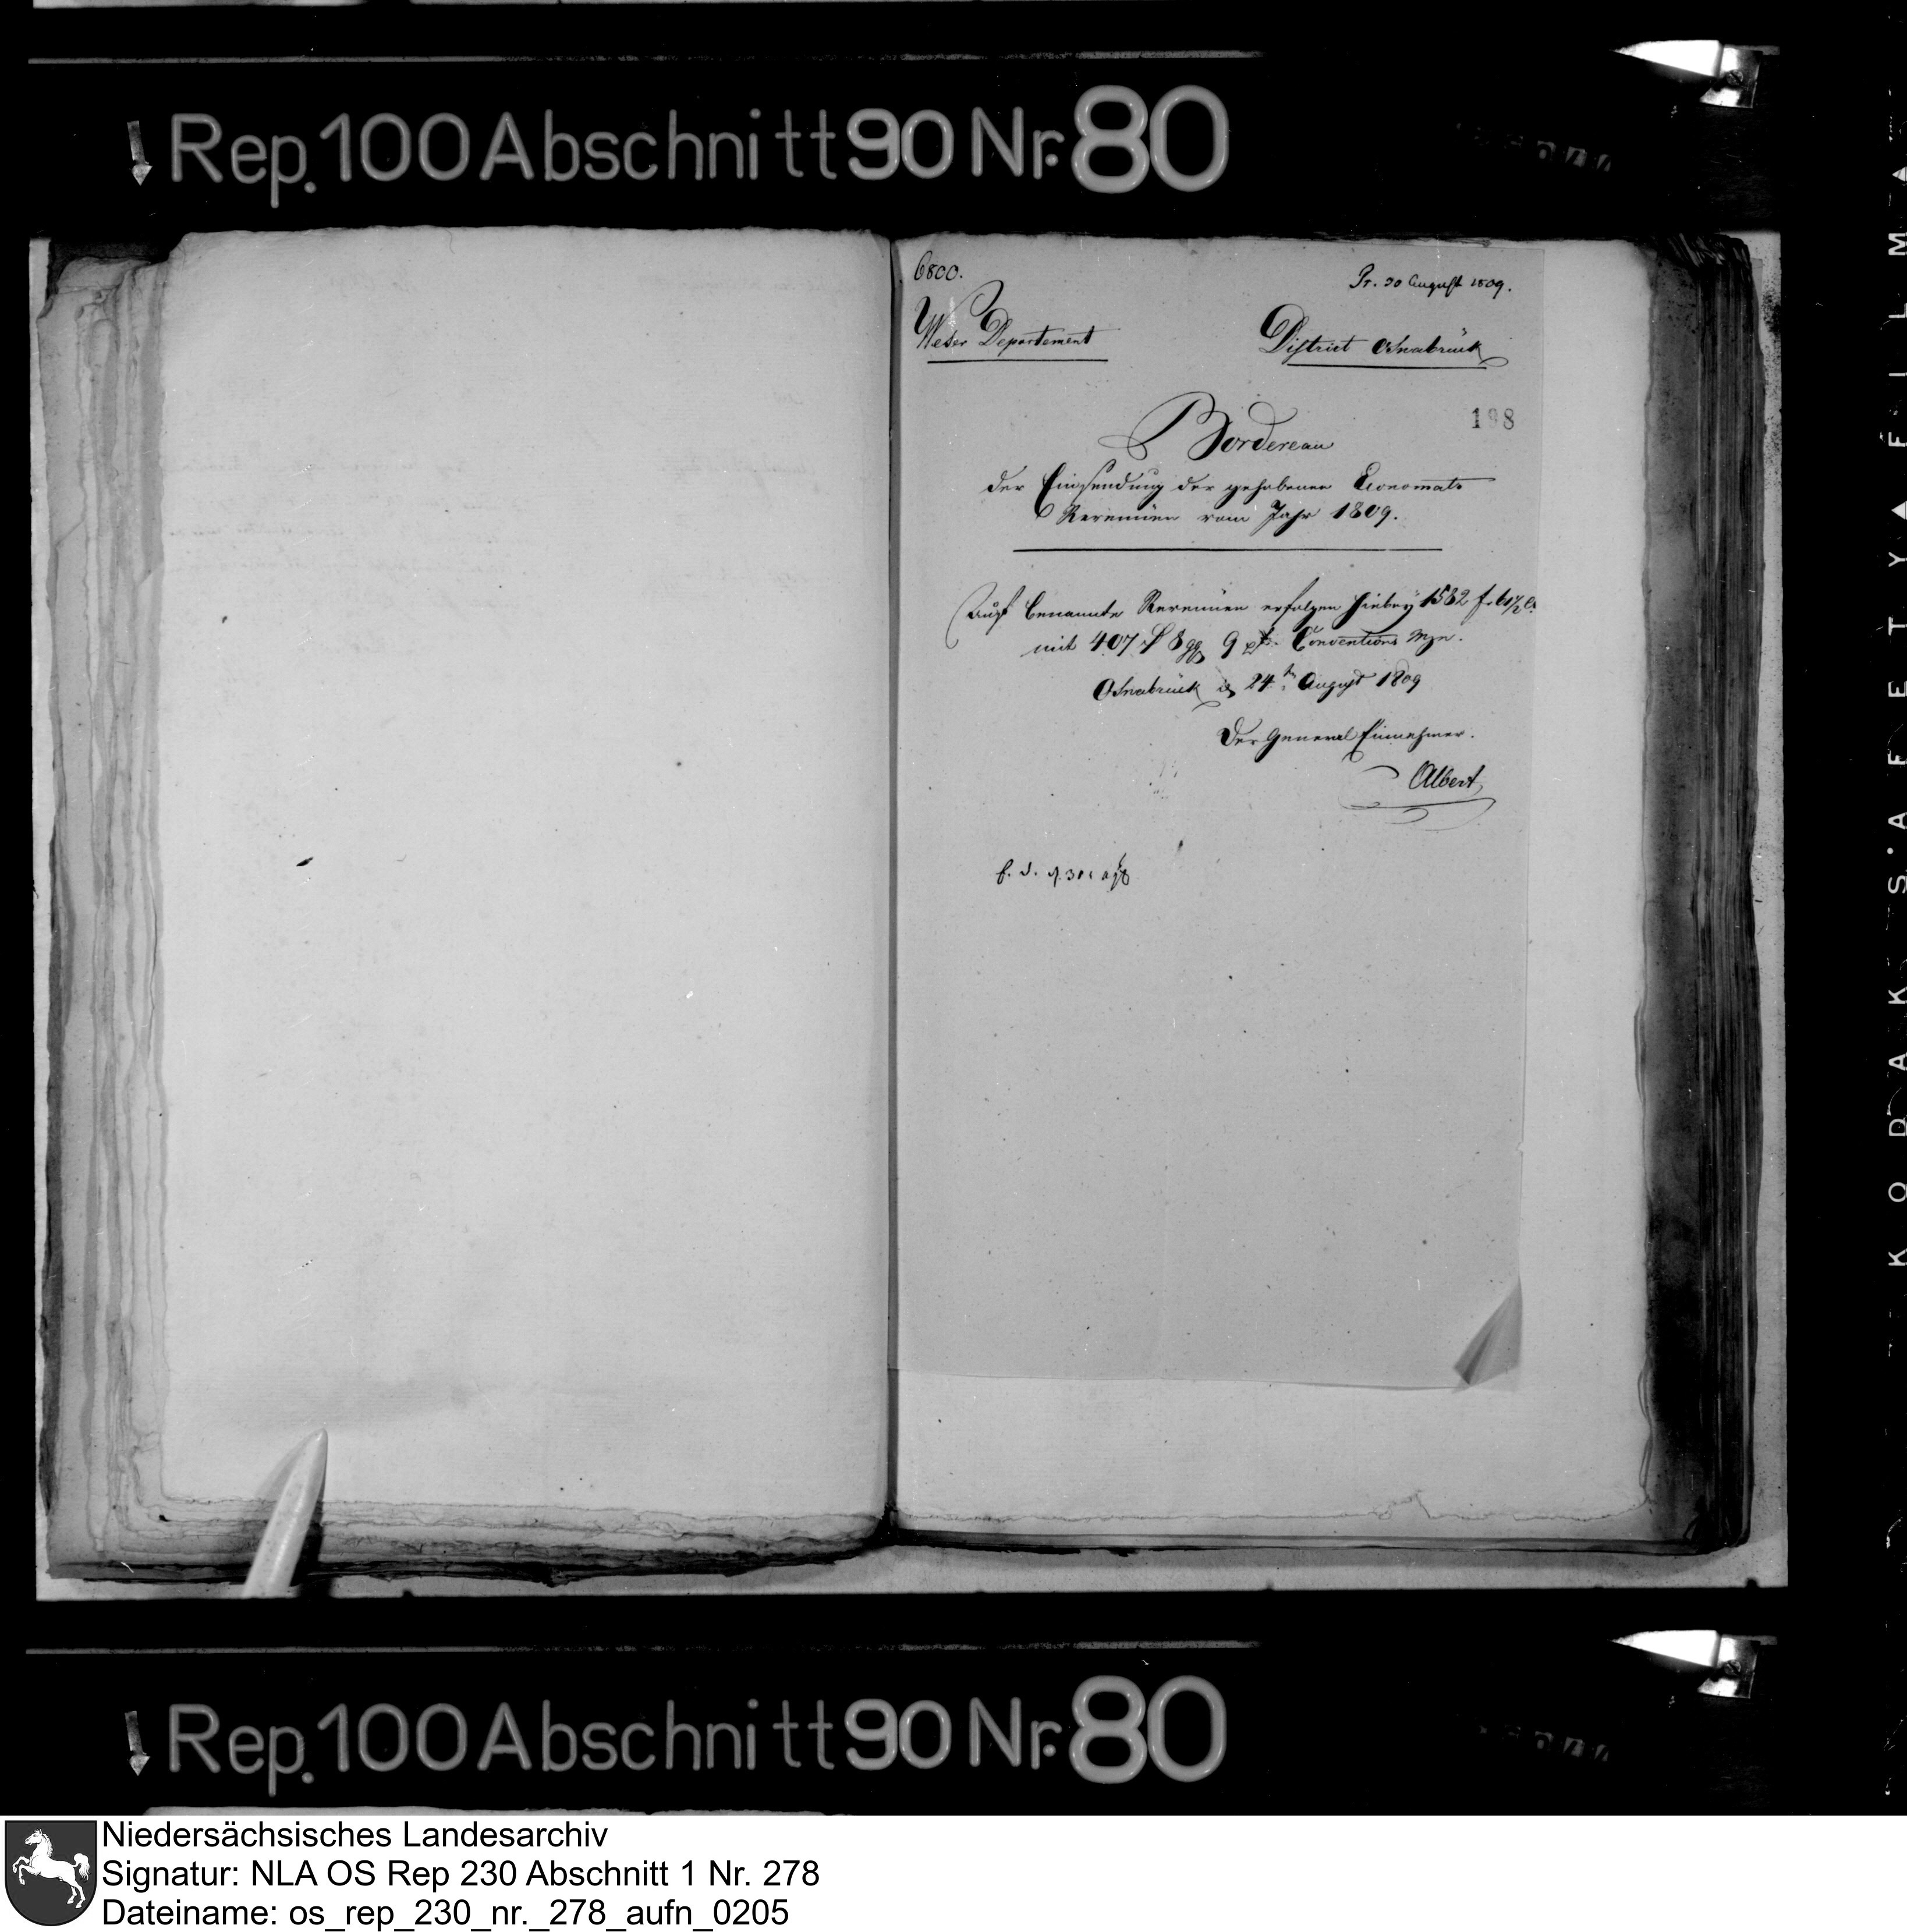 Rep. 100 Abschnitt 90 Nr. 80
6800.
Pr. 30 August 1809.
Weser Departement
District Osnabrück
198
Bordereau
der Einsendung der gehobenen Economats
Revenüen vom Jahr 1809.
Auf benannte Revenüen erfolgen hiebey 1582 fr
mit 407 8 gg 9 Conventions Mze.
Osnabrück d 24ten August 1809
Der General Einnehmer.
Albert
KODAK SAFETY FILM
Rep. 100 Abschnitt 90 Nr. 80
Niedersächsisches Landesarchiv
Signatur: NLA OS Rep 230 Abschnitt 1 Nr. 278
Dateiname: os_rep_230_nr._278_aufn_0205